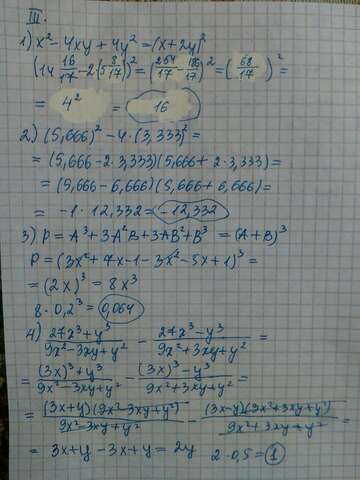 III.
1) x² - 4xy + 4y² = (x + 2y)²
(14 16/17 - 2(5 8/17)² = (254/17 - 186/17)² = (68/17)² =
= 4² = 16
2) (5,666)² - 4 · (3,333)² =
= (5,666 - 2 · 3,333)(5,666 + 2 · 3,333) =
= (5,666 - 6,666)(5,666 + 6,666) =
= -1 · 12,332 = -12,332
3) P = A³ + 3A²B + 3AB² + B³ = (A + B)³
P = (3x² + 7x - 1 - 3x² - 5x + 1)³ =
= (2x)³ = 8x³
8 · 0,2³ = 0,064
4) (27x³ + y³)/(9x² - 3xy + y²) - (27x³ - y³)/(9x² + 3xy + y²) =
= ((3x)³ + y³)/(9x² - 3xy + y²) - ((3x)³ - y³)/(9x² + 3xy + y²) =
= ((3x + y)(9x² - 3xy + y²))/(9x² - 3xy + y²) - ((3x - y)(3x² + 3xy + y²))/(9x² + 3xy + y²) =
= 3x + y - 3x + y = 2y 2 · 0,5 = 1